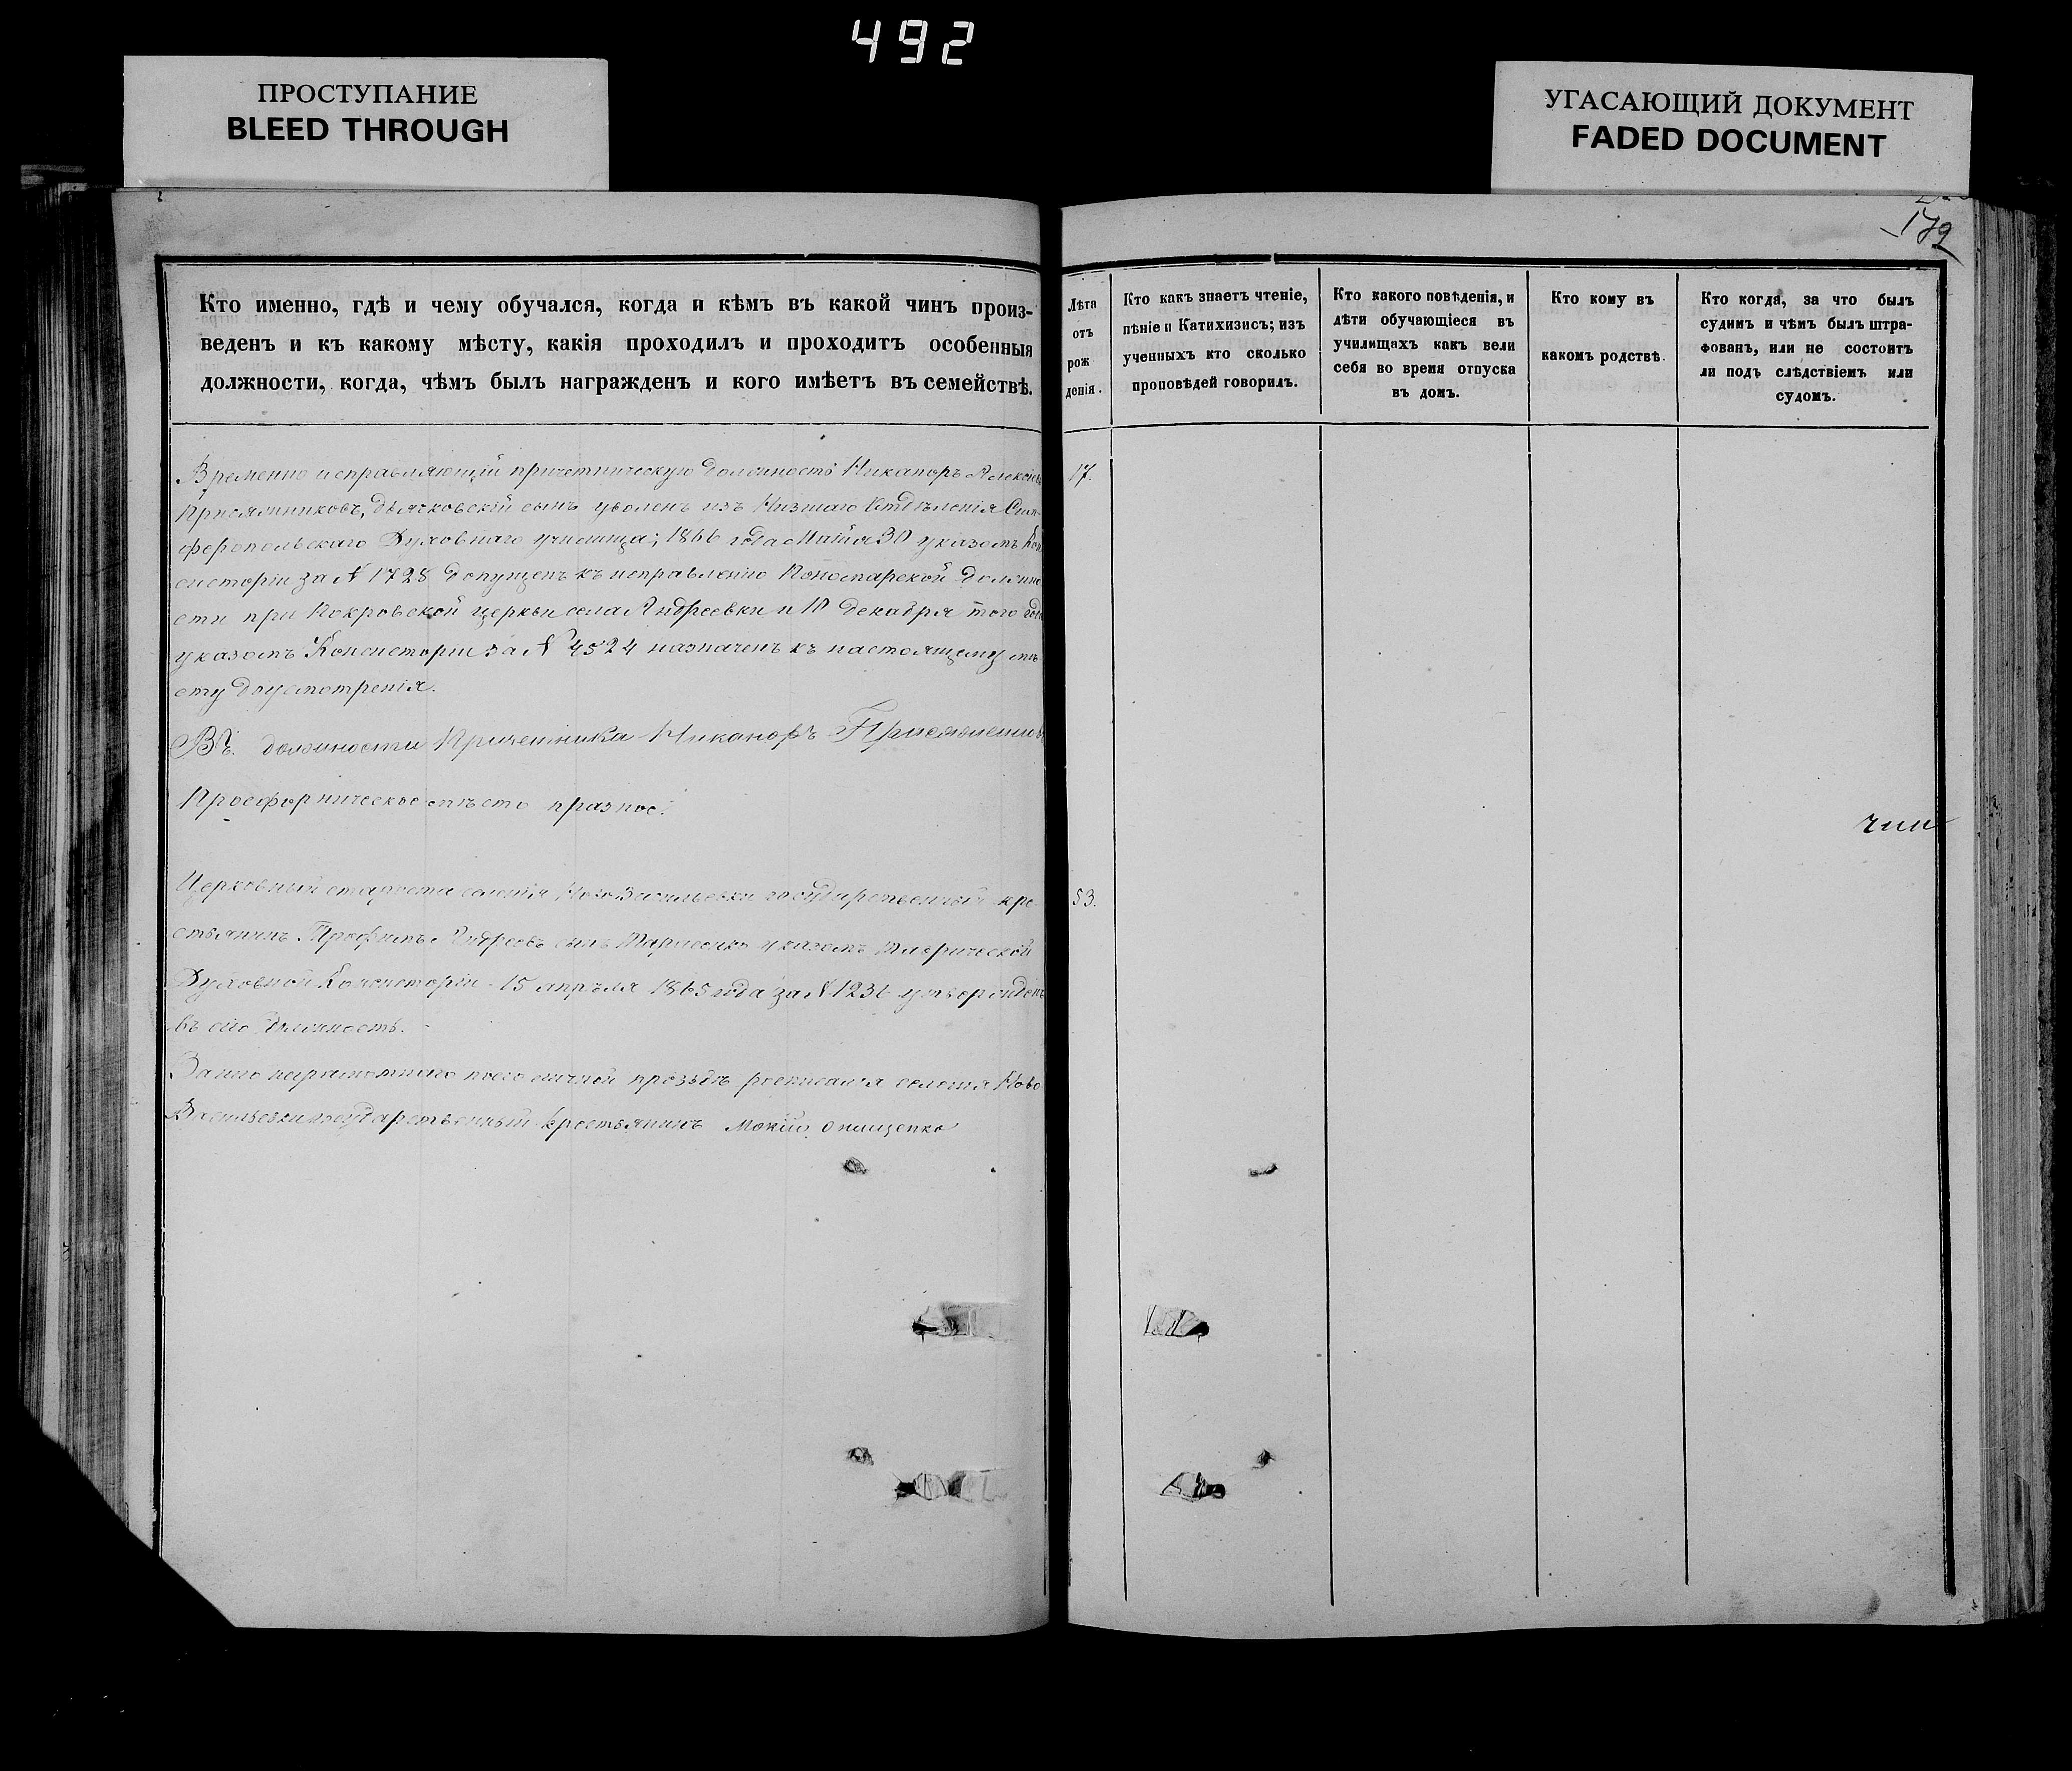 492
ПРОСТУПАНИЕ
BLEED THROUGH
УГАСАЮЩИЙ ДОКУМЕНТ
FADED DOCUMENT
179
Кто именно, гдѣ и чему обучался, когда и кѣмъ въ какой чинъ произ-
веденъ и къ какому мѣсту, какія проходилъ и проходитъ особенныя
должности, когда, чѣмъ былъ награжденъ и кого имѣетъ въ семействѣ.
Временно исправляющій причетническую должность Никаноръ
дьячковскій сынъ уволенъ изъ Низшаго Отдѣленія Сим-
феропольскаго Духовнаго училища; 1866 года Маія 30 указомъ Кон
систоріи за № 1728 допущенъ къ исправленію Пономарской должно
сти при Покровской церкви села Андреевки и 10 Декабря того года
указомъ Консисторіи за № 4524 назначенъ къ настоящему мѣ
сту до усмотренія.
Въ должности Причетника Никаноръ
Просфорническое мѣсто празное.
Церковный староста селенія Ново Васильевки государственный кре
стьянинъ Трофимъ Андреевъ сынъ указомъ Таврической
Духовной Консисторіи 15 апрѣля 1865 года за № 1236 утвержденъ
въ сію должность.
За него неграмотнаго по его личной прозьбѣ росписался селенія Ново
Васильевки государственный крестьянинъ Мокій Онищенко
Лѣта
отъ
рож
денія.
Кто какъ знаетъ чтеніе,
пѣніе и Катихизисъ; изъ
ученныхъ кто сколько
проповѣдей говорилъ.
Кто какого поведенія, и
дѣти обучающіеся въ
училищахъ какъ вели
себя во время отпуска
въ домъ.
Кто кому въ
какомъ родствѣ.
Кто когда, за что былъ
судимъ и чѣмъ былъ штра-
фованъ, или не состоитъ
ли подъ слѣдствіемъ или
судомъ.
17.
53.